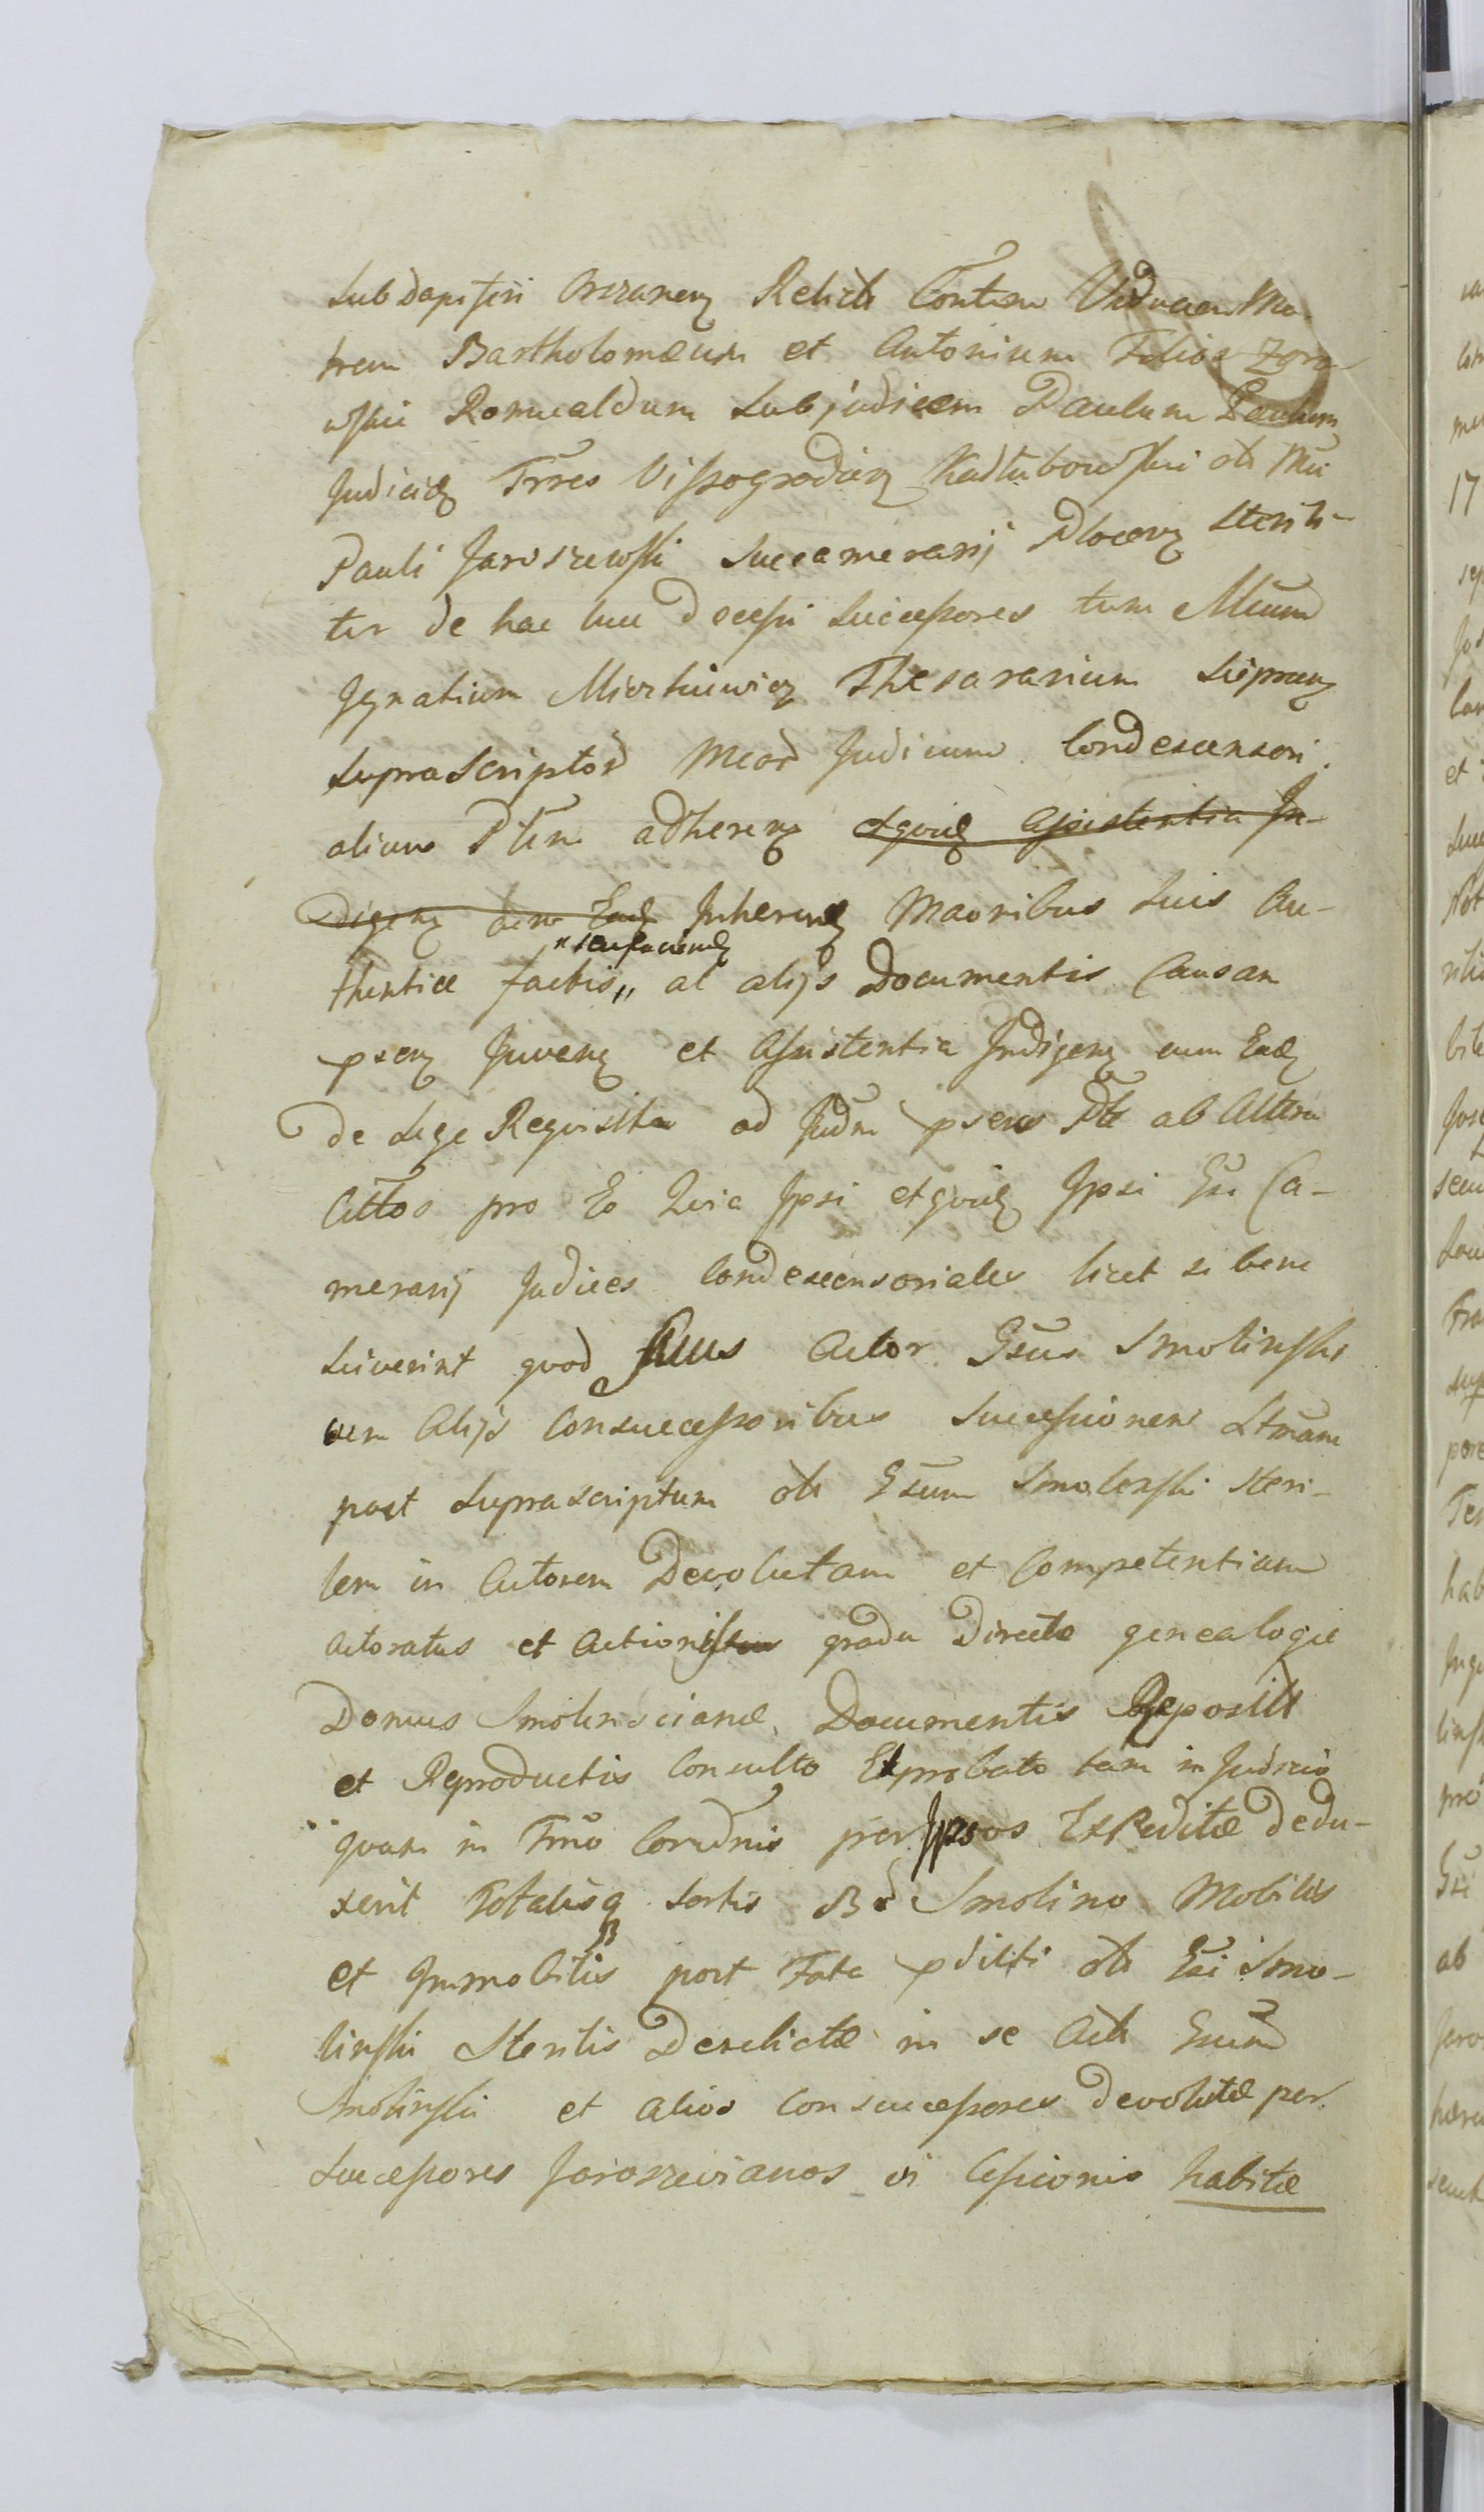 Subdapiferi Orszanen Relicta Contem Viduam Ma-
trem Bartholomæum et Antonium Filios Zgro-
wskie Romualdum Subjudicem Paulum
Judicid Frres Vissogrodien Kadłubowski oli Mci
Pauli Jaroszewski Succamerarij Plocen Sterili-
ter de hac luce decessi Successores tum Mcum
Ignatium Mierkiewicz Thesararium
Suprascriptor Mcor Judicium Condescensori-
alium Pltim adheren etquid Assistentia In-
digen Inheren Maoribus Suis Au-
thentice factis,, ac alijs Documentis Causam
psen Juven et Assistentia Indigen cum Ead
De Lege Requisita ad Judm psens Pte ab Altera
Cittos pro Eo Quia Ipsi etquid Ipsi Gsi Ca-
merarij Judices Condescensoriales licet si bene
Sciverint quod Actor Gsus Smolinski
cum Alijs Consuccessoribus Successionem
post Suprascriptum oli Gsum Smolenski Steri-
lem in Actorem Devolutam et Competentiam
Actoratus et Actionis gradu Directo genealogie
Domus Smolensciane Documentis Repositis
et Reproductis Consulto Exprobato tam in Judicio
quam in Fmo Cordnis per Ipsos Expeditæ dedu-
xerit Totalisq Sortis Bo Smolino Mobilis
et Immobilis post Fata pditti oli Gsi Smo-
linski Sterilis Derelictæ in se Act Gsum
Smolinski et alios Consuccessores devolutæ per
Successores Jaroszevianos vi Cessionis habitæ